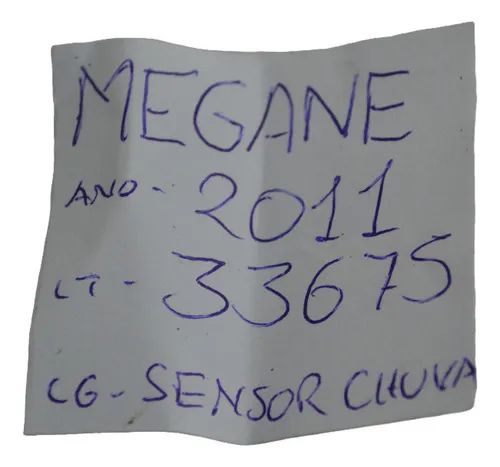 MEGANE
ANO - 2011
LT - 33675
CG - SENSOR CHUVA